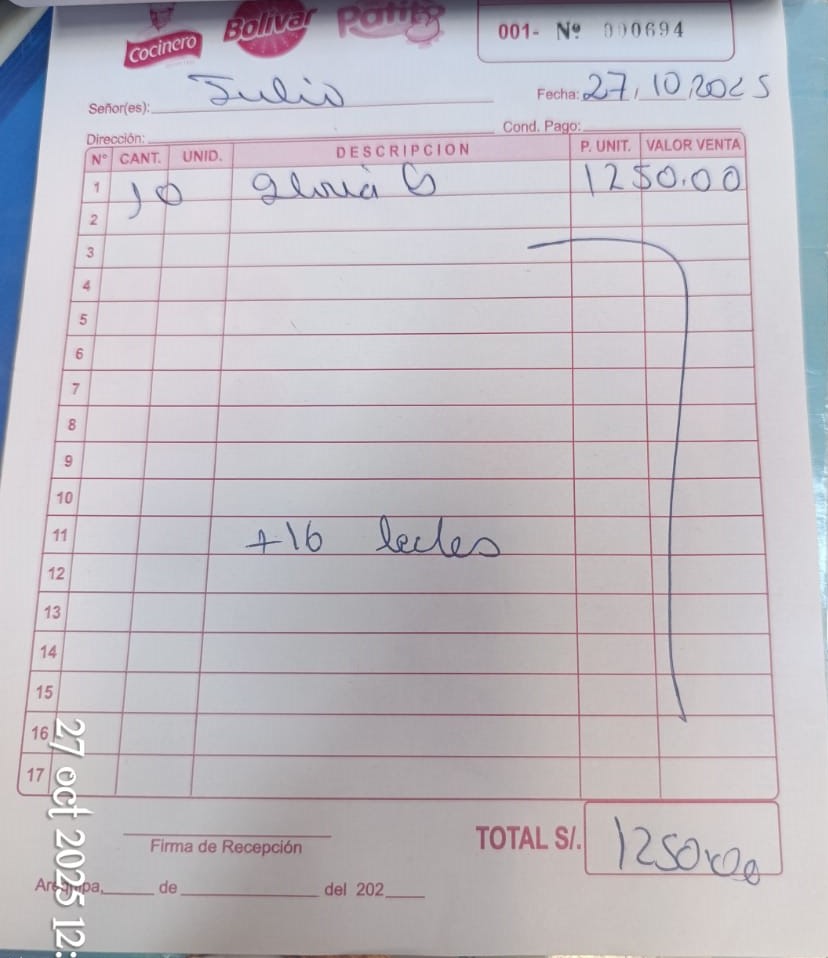 Cocinero
Bolivar
Patito
001- Nº 000694
Señor(es): Julio
Fecha: 27, 10, 2025
Dirección:
Cond. Pago:
Nº CANT. UNID. DESCRIPCION P. UNIT. VALOR VENTA
1 10 gloria G 1250.00
2
3
4
5
6
7
8
9
10
11 +16 leches
12
13
14
15
16
17
Firma de Recepción
TOTAL S/. 1250.00
Arequipa, ____ de ____ del 202__
27 oct 2025 12: